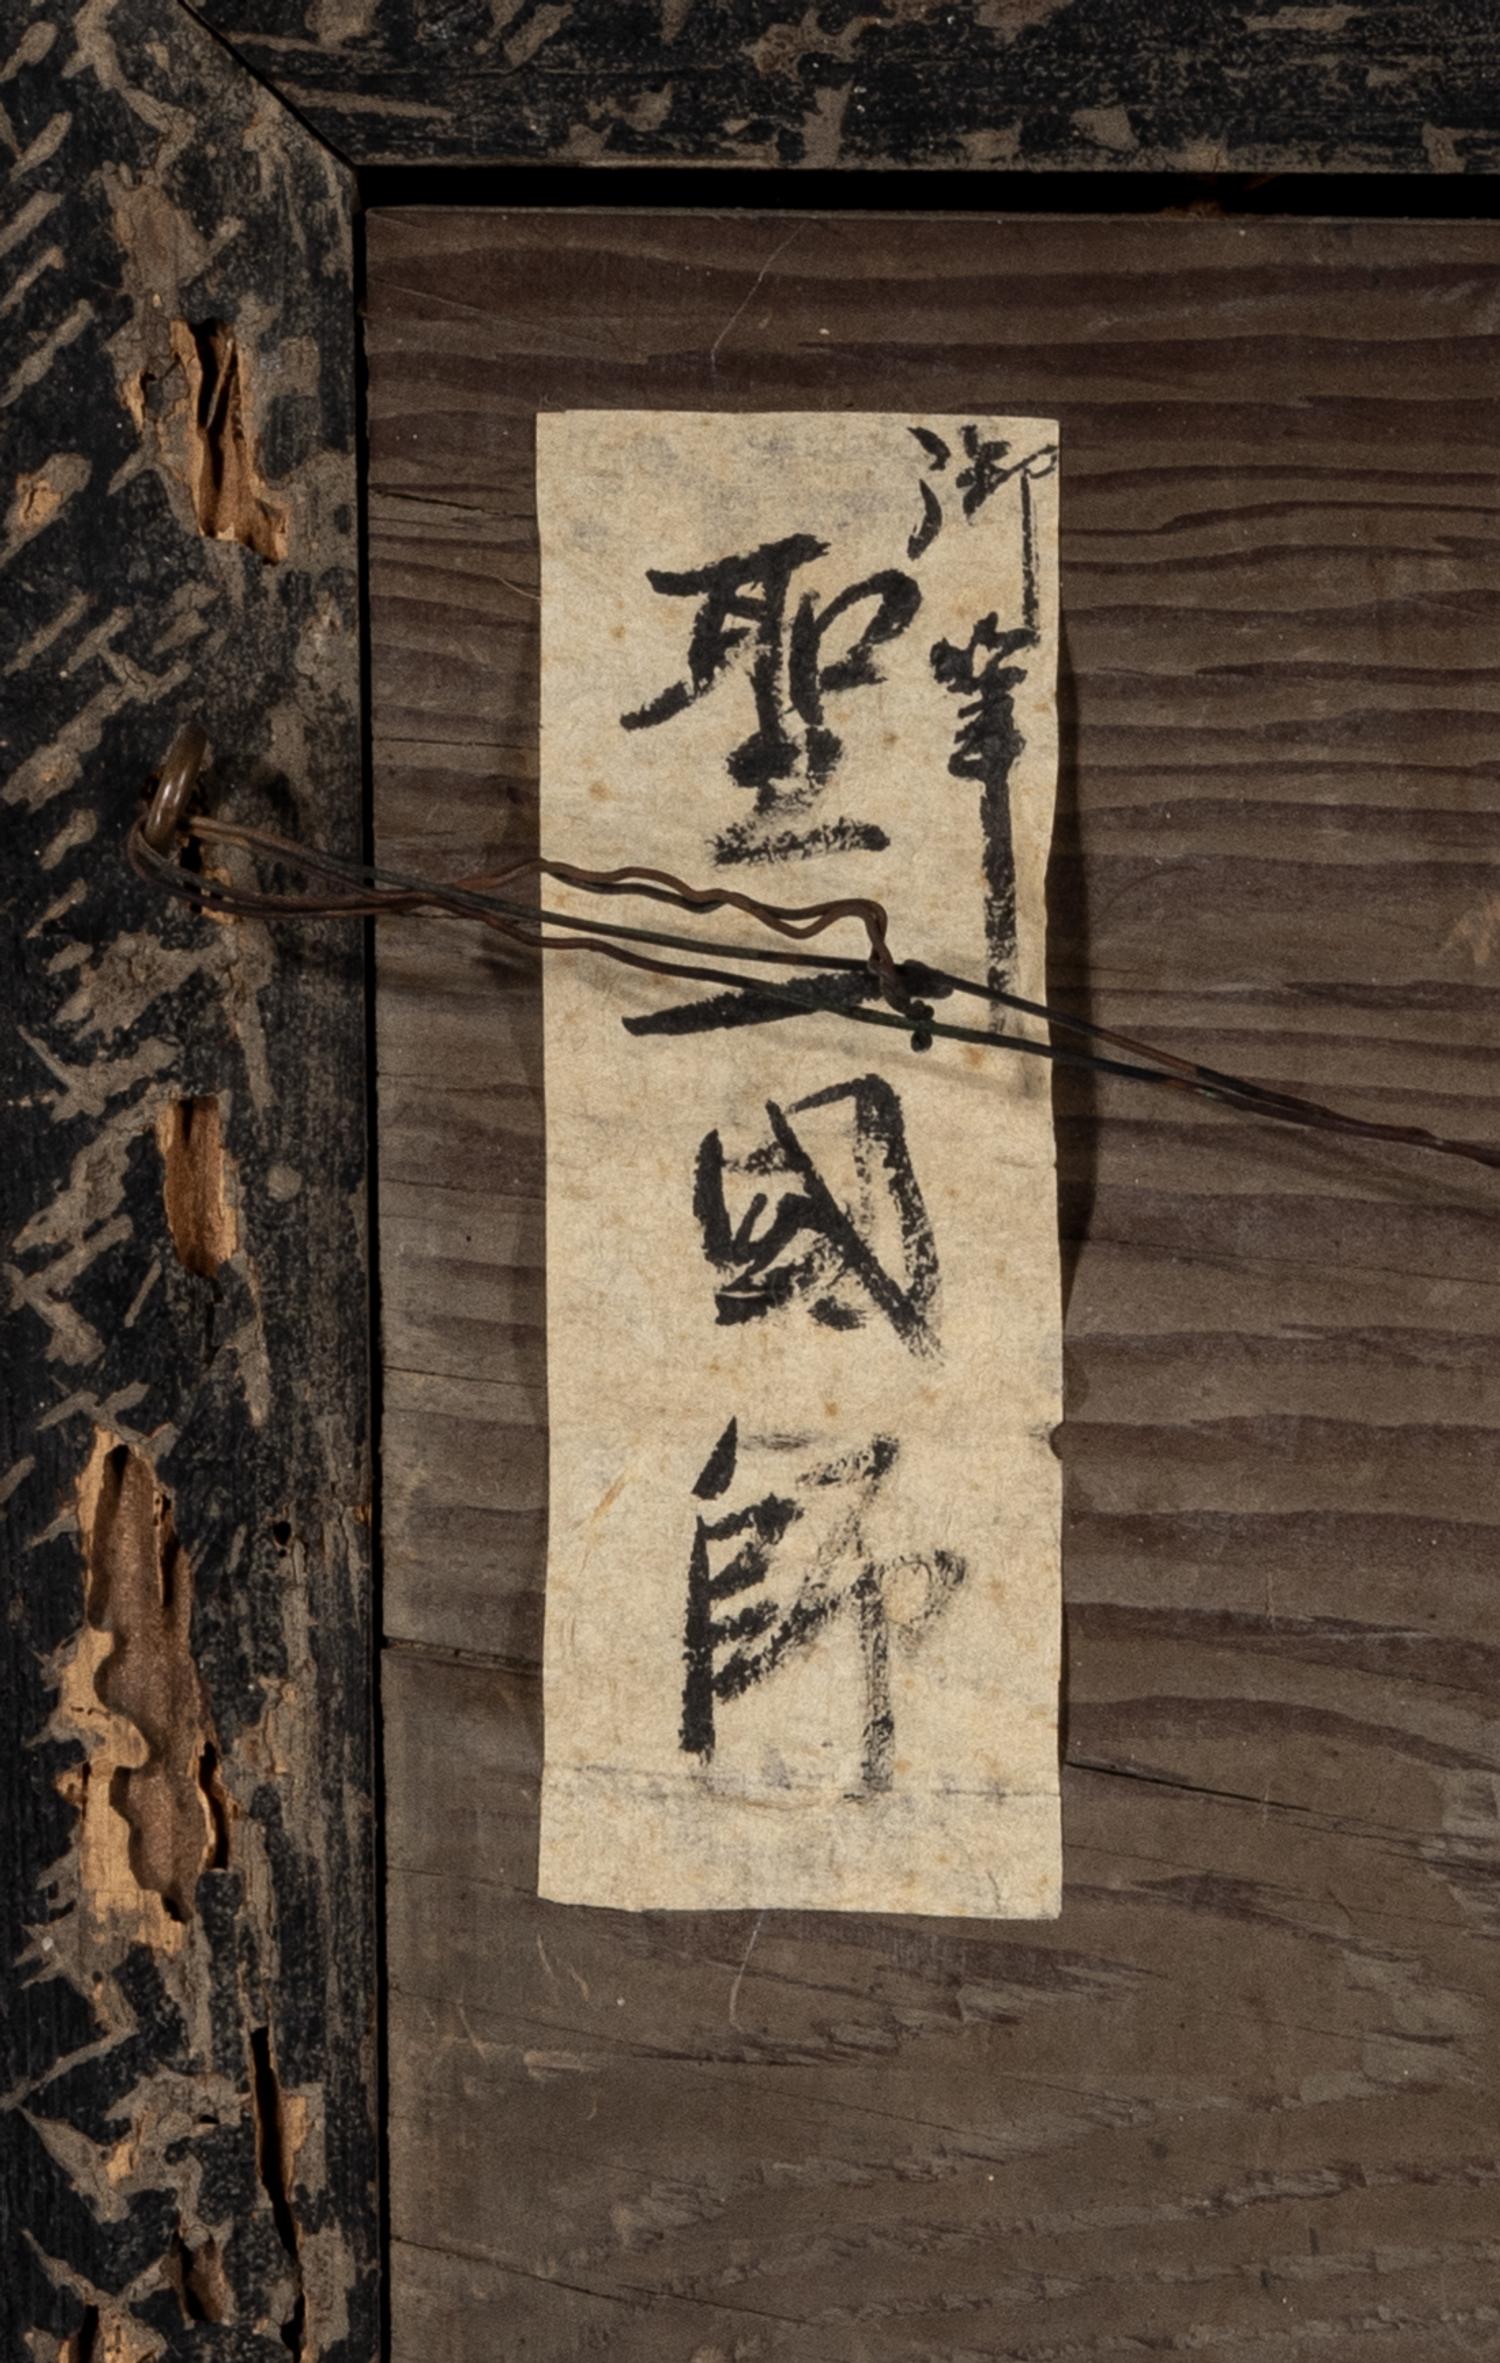 御筆
聖一國師